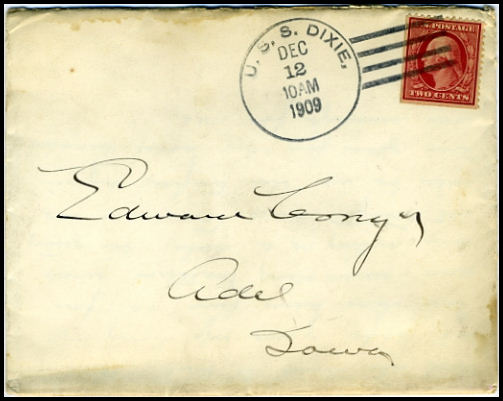 U.S.S. DIXIE,
DEC
12
10AM
1909
POSTAGE
TWO CENTS
Edward Conger
Adel
Iowa